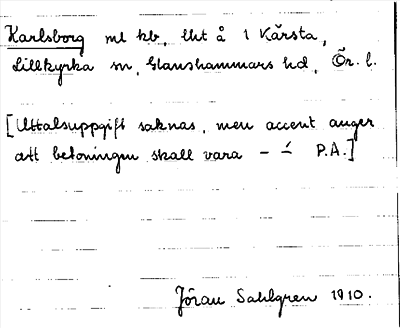 Karlsborg ml kb, lht å 1 Kårsta,
Lillkyrka sn, Glanshammars hd, Ör. l.
[Uttalsuppgift saknas, men accent anger
att betoningen skall vara – –́ P.A.]
Jöran Sahlgren 1910.